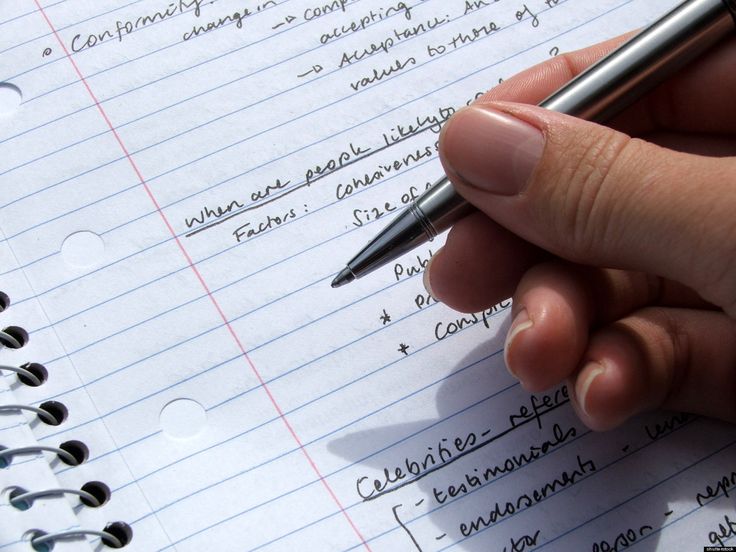 • Conformity:
change in
→ comp
accepting
→ Acceptance: An
values to those of
When are people likely to
Factors: Cohesiveness
Size of
Publ
* pr
* Conspic
Celebrities - refere
- testimonials
- endorsements -
- repr